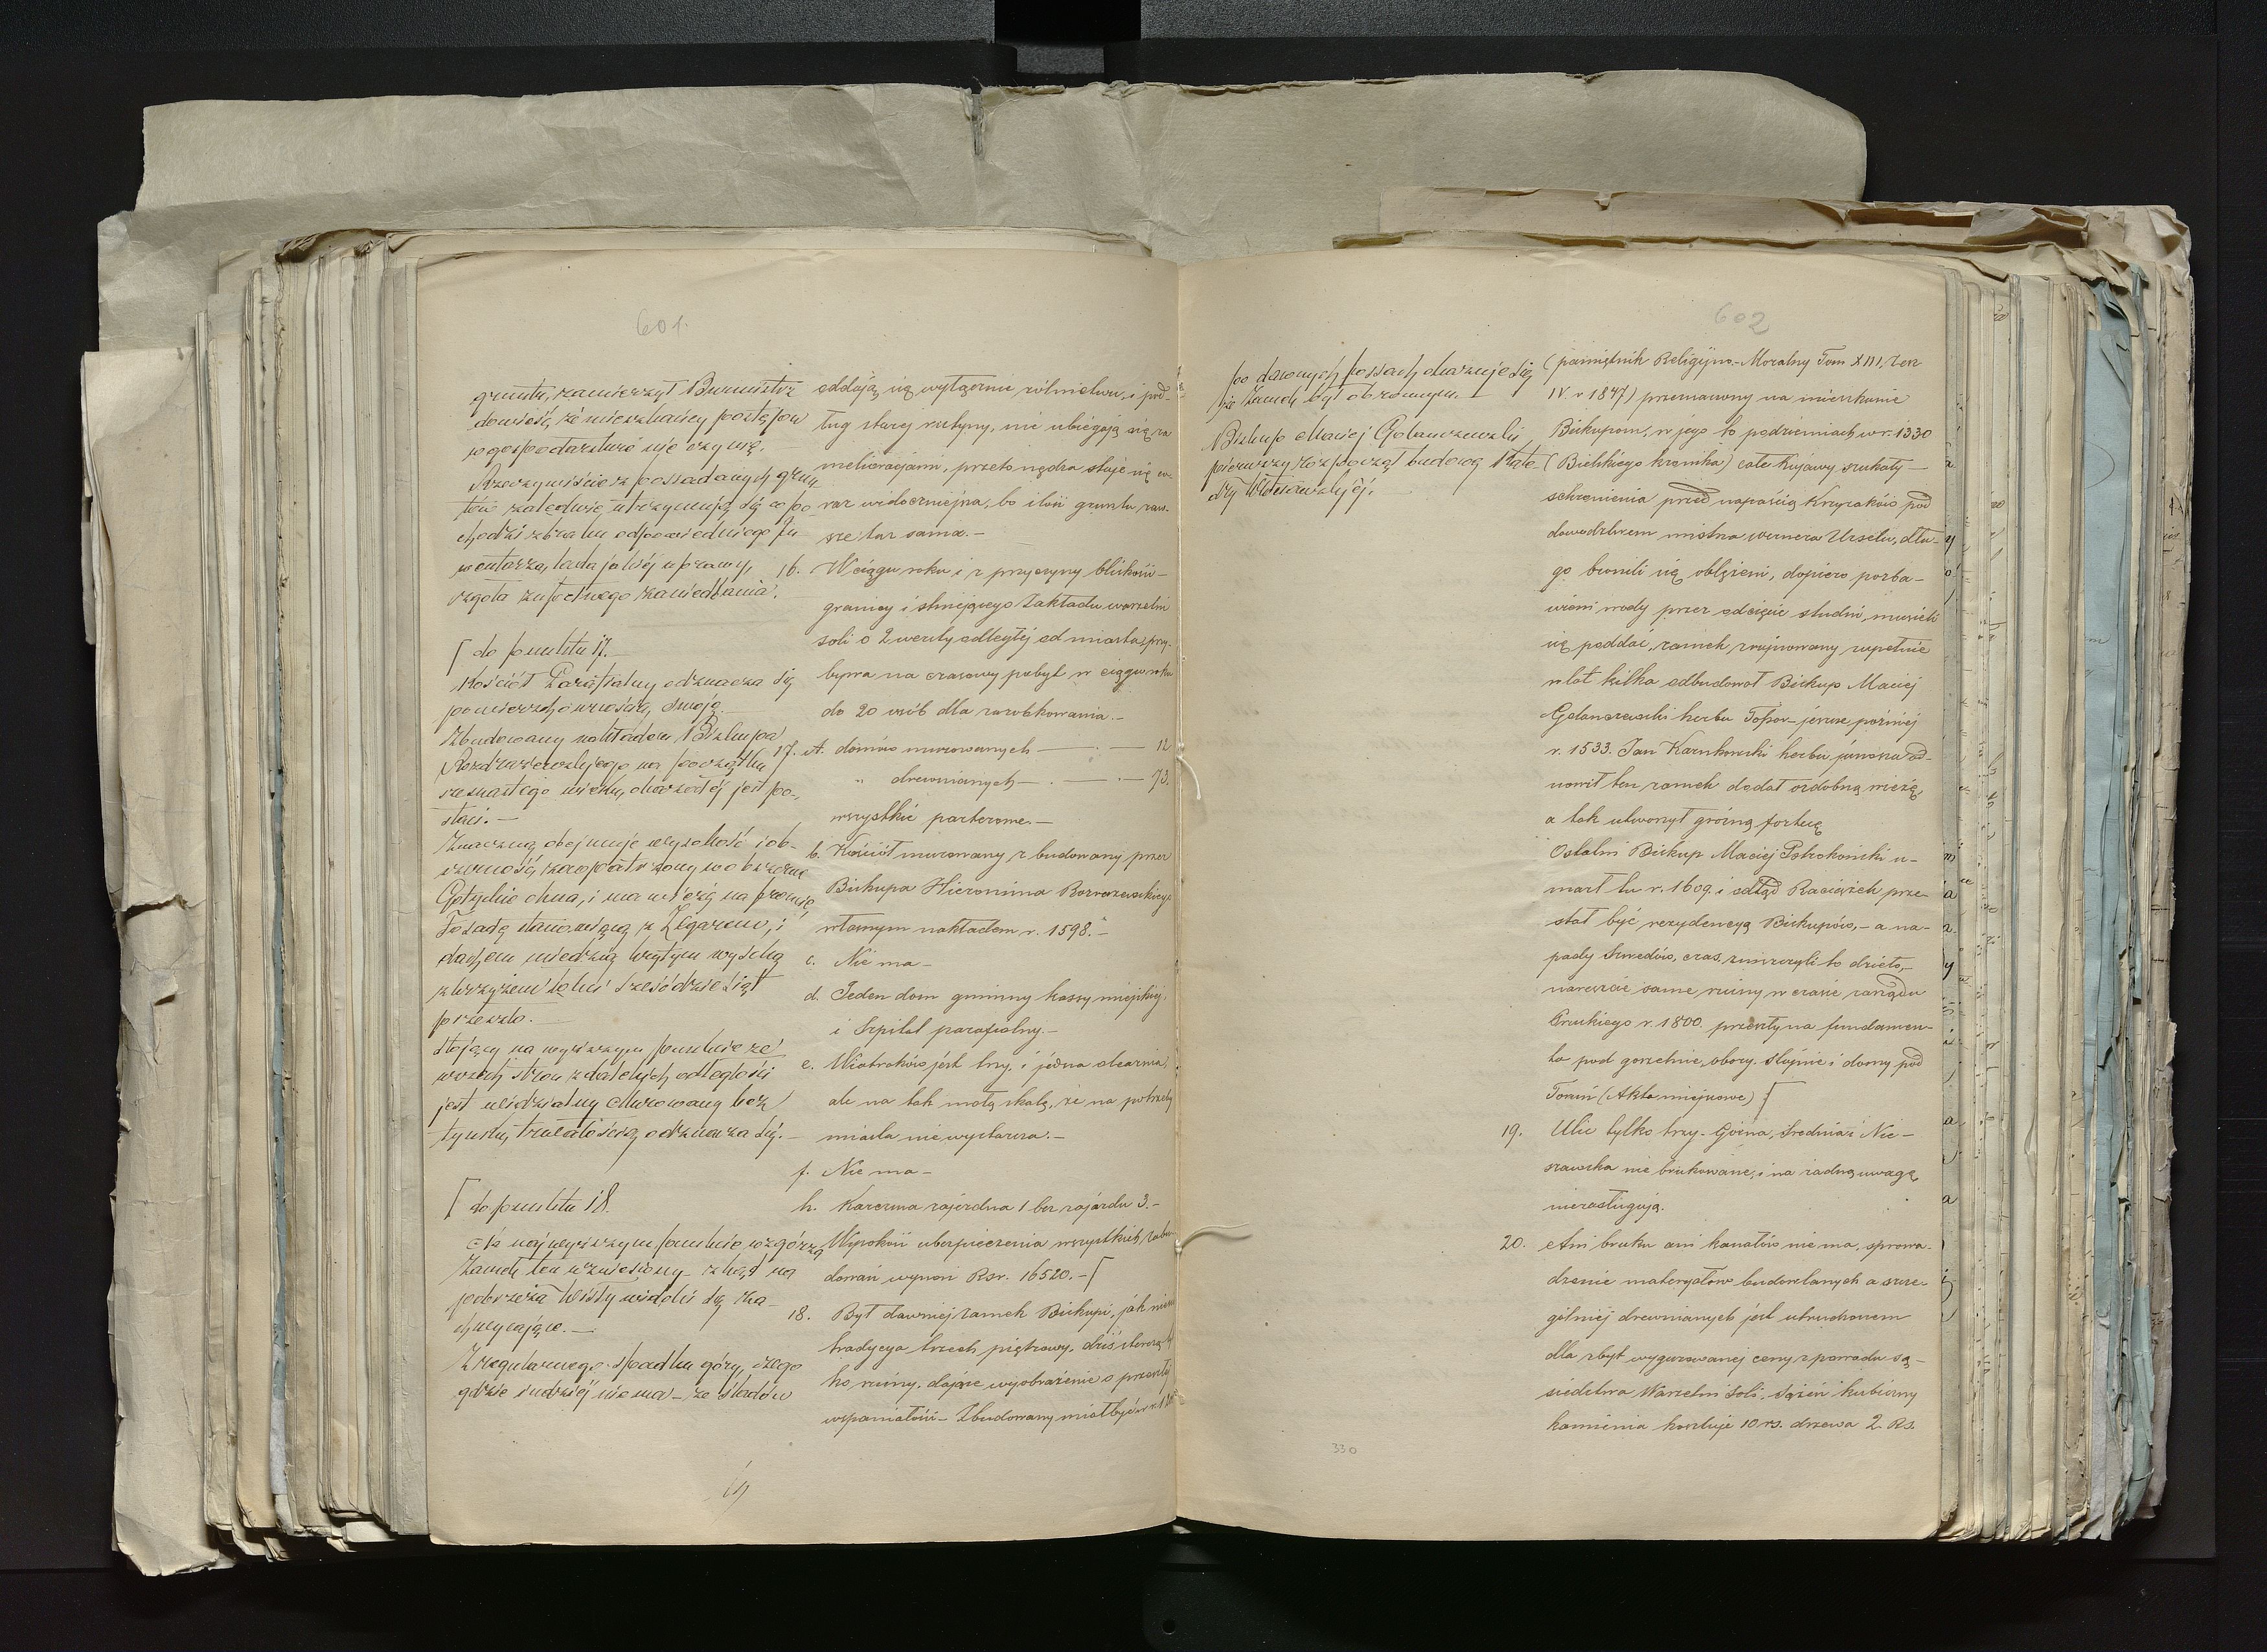 601.
gruntu, zamierzył Burmistrz
dowieść, że mieszkańcy postępu
w gospodarstwie nie czynią.
Rzeczywiście z possadanych grun
tów zaledwie utrzymują się co po
chodzi z braku odpowiedniego In
wentarza, lada jakiéj uprawy,
zgoła zupełnego zaniedbania.
[do punktu 17.
Kościół Parafialny odznacza się
powierzchownością swoją.
Zbudowany nakładem Biskupa
Rozdrażewskiego na początku
szesnastego wieku, okazałéj jest po-
staci.—
Znaczną obejmuje wysokość i ob-
szerność, zaopatrzony w obszerne
Gotyckie okna, i ma wieżę na froncie,
Fosadę stanowiącą z Zegarem, i
dachem miedzią krytym wysoką
z krzyżem łokci sześćdziesiąt
przeszło.—
Stojący na wyższym punkcie ze
wszech stron z dalekich odległości
jest widzialny. Murowany bez
tynku, trwałością odznacza się.—
[do punktu 18.
Na najwyższym punkcie wzgórza
Zamek ten wzniesiony zkąd na
pobrzeża Wisły widoki są za-
chwycające.—
Z regularnego spadku góry, czego
gdzie indziéj nie ma — ze śladów
oddają się wyłącznie rólnictwu, i pod-
ług starej rutyny, nie ubiegają się za
melioracjami, przeto nędza staje się co-
raz widoczniejsza, bo ilość gruntu zaw-
sze taż sama.—
16. W ciągu roku i z przyczyny blizkości—
granicy i istniejącego Zakładu warzelni
soli o 2 wersty odległéj od miasta, przy-
bywa na czasowy pobyt w ciągu roku
do 20 osób dla zarobkowania.—
17. A. domów murowanych — . — 12
" drewnianych — . — 73.
wszystkie parterowe.—
b. Kościół murowany z budowany przez
Biskupa Hieronima Rozrażewskiego
własnym nakładem r. 1598.—
c. Nie ma—
d. Jeden dom gminny kassy miejskiej
i Szpital parafialny.—
e. Wiatraków jest trzy, i jedna olearnia,
ale na tak małą skalę, że na potrzeby
miasta niewystarcza.—
f. Nie ma—
h. Karczma zajezdna 1 bez zajazdu 3.—
Wysokość ubezpieczenia wszystkich zabu
dowań wynosi Rsr. 16520.—[
18. Był dawniej zamek Biskupi, jak niesie
tradycya trzech piętrowy, dziś sterczą tyl
ko ruiny, dające wyobrażenie o przeszłej
wspaniałości— Zbudowany miał być w r.
602
po dawnych fossach okazuje się
że Zamek był obronnym.
Biskup Maciej Gołanczewski
pierwszy rozpoczął budowę Kate-
dry Włocławskiej.
(pamiętnik Religijno-Moralny Tom XIII, Zesz
IV. r 1847) przeznaczony na mieszkanie
Biskupom, w jego to podziemiach w r. 1330
(Bielskiego kronika) całe Kujawy szukały—
schronienia przed napaścią Krzyżaków pod
dowództwem mistrza wernera Urseln, dłu-
go bronili się oblężeni, dopiero pozba-
wieni wody przez odcięcie studni, musieli
się poddać, zamek zrujnowany zupełnie
w lat kilka odbudował Biskup Maciej
Gołanczewski herbu Topor— jeszcze później
r. 1533. Jan Karnkowski herbu junosza od-
nowił ten zamek dodał ozdobną wieżę,
a tak utworzył groźną fortecę
Ostatni Biskup Maciej Pstrokoński u-
marł tu r. 1609. i odtąd Raciążek prze-
stał być rezydencyą Biskupów,— a na-
pady Szwedów, czas, zniszczyli to dzieło,—
nareszcie same ruiny w czasie rządu
Pruskiego r. 1800. przeszły na fundamen-
ta pod gorzelnie, obory, Stajnie i domy pod
Toruń (Akta miejscowe) [
19. Ulic tylko trzy— Górna, Średnia i Nie—
szawska nie brukowane, i na żadną uwagę
niezasługują.
20. Ani bruku ani kanałów nie ma, sprowa-
dzenie materyałów budowlanych a szcze-
gólniej drewnianych jest utrudnionem
dla zbyt wygurowanej ceny z powodu są-
siedztwa Warzelni Soli. Sążeń kubiczny
kamienia kosztuje 10 rs. drzewa 2 Rs.
330